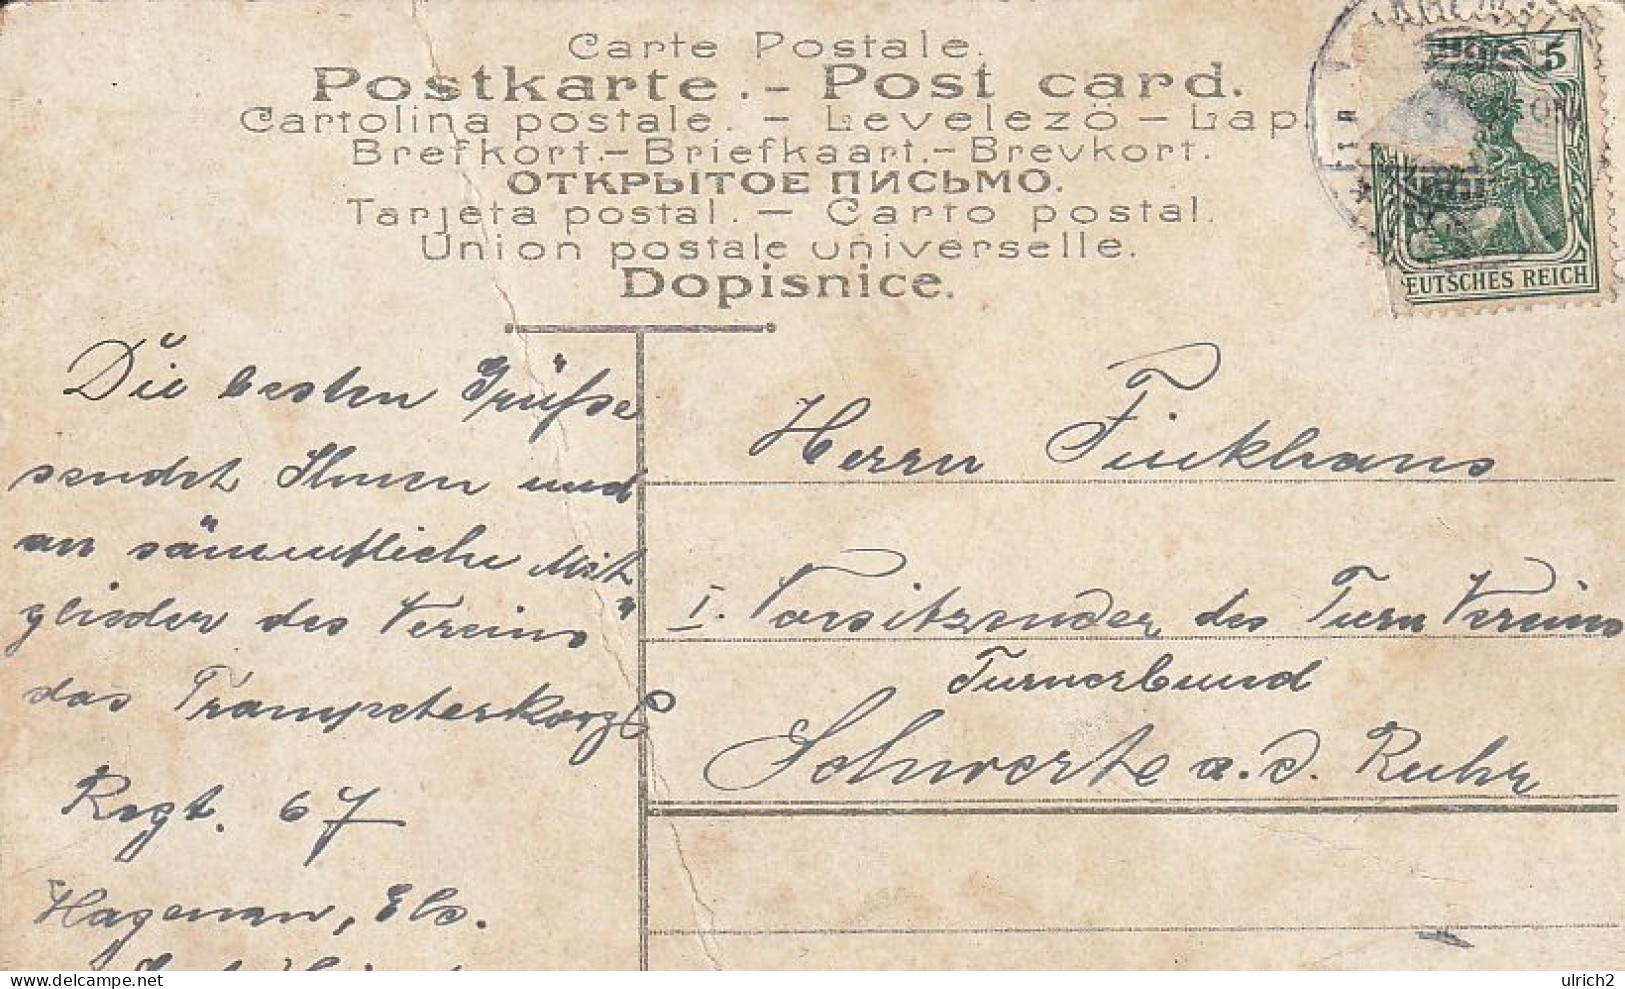 Carte Postale.
Postkarte . - Post card.
Cartolina postale. - Levelező - Lap
Brefkort. - Briefkaart. - Brevkort.
ОТКРЫТОЕ ПИСЬМО.
Tarjeta postal. - Carto postal.
Union postale universelle.
Dopisnice.
5
EUTSCHES REICH
Die besten Grüsse
sendet Ihnen und
an sämmtliche Mit
glieder des Vereins"
das Trompeterkorps
Regt. 67
Hagenau, Els.
Herrn Finkhaus
I. Vorsitzender des Turn Vereins
Turnerbund
Schwerte a. d. Ruhr
ulrich2